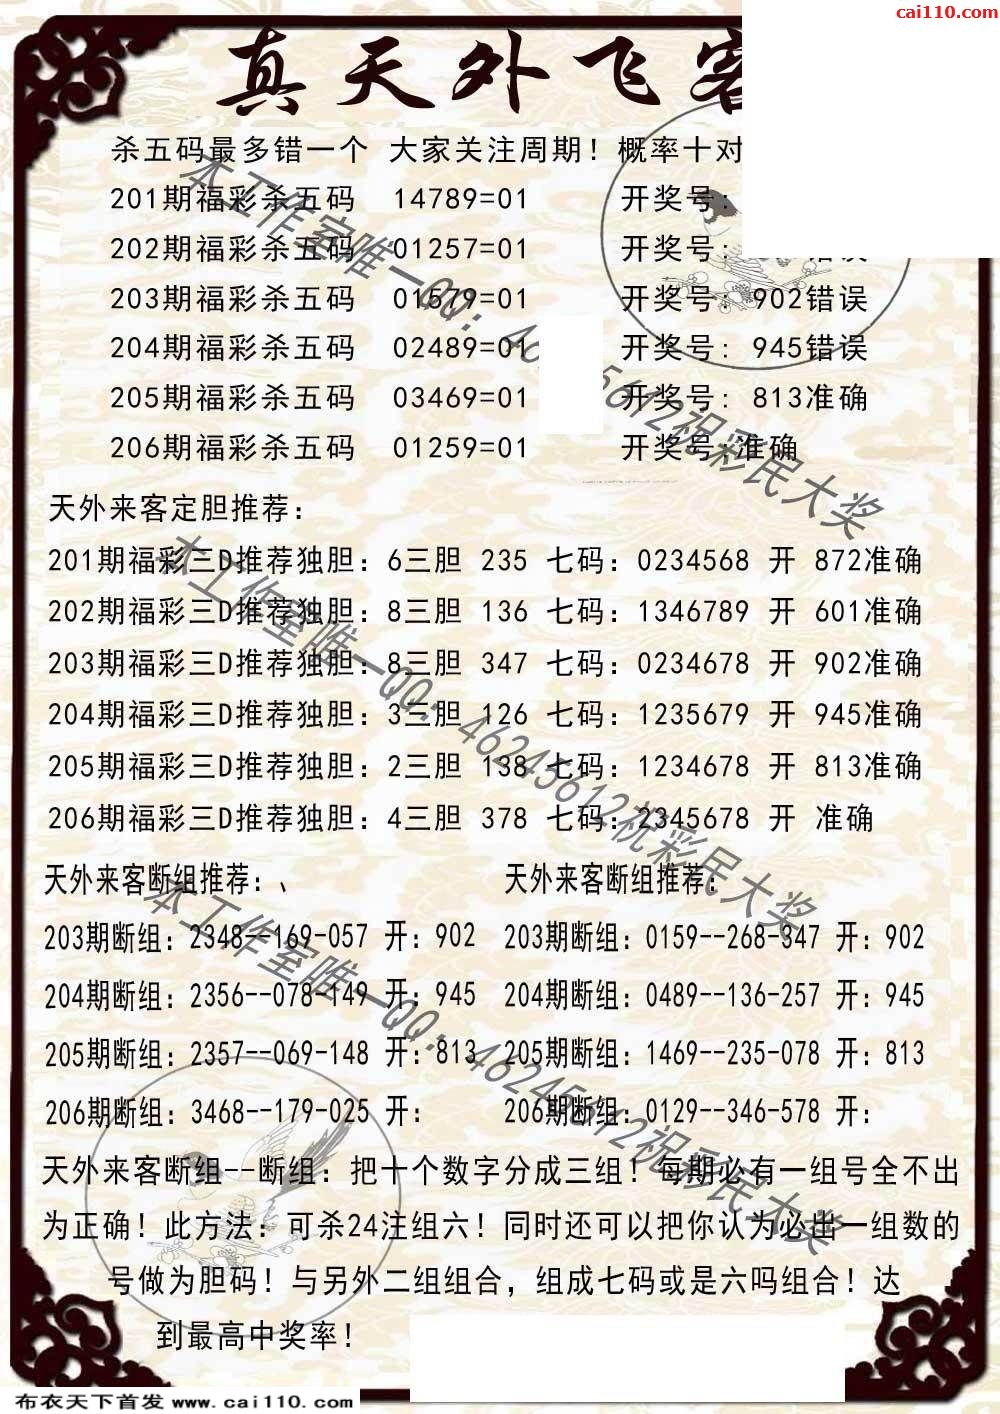 cai110.com
真天外飞客
杀五码最多错一个 大家关注周期！概率十对
201期福彩杀五码 14789=01 开奖号:
202期福彩杀五码 01257=01 开奖号: 错误
203期福彩杀五码 01579=01 开奖号: 902错误
204期福彩杀五码 02489=01 开奖号: 945错误
205期福彩杀五码 03469=01 开奖号: 813准确
206期福彩杀五码 01259=01 开奖号:准确
天外来客定胆推荐:
201期福彩三D推荐独胆: 6三胆 235 七码: 0234568 开 872准确
202期福彩三D推荐独胆: 8三胆 136 七码: 1346789 开 601准确
203期福彩三D推荐独胆: 8三胆 347 七码: 0234678 开 902准确
204期福彩三D推荐独胆: 3三胆 126 七码: 1235679 开 945准确
205期福彩三D推荐独胆: 2三胆 138 七码: 1234678 开 813准确
206期福彩三D推荐独胆: 4三胆 378 七码: 2345678 开 准确
天外来客断组推荐:、 天外来客断组推荐:
203期断组: 2348--169-057 开: 902 203期断组: 0159--268-347 开: 902
204期断组: 2356--078-149 开: 945 204期断组: 0489--136-257 开: 945
205期断组: 2357--069-148 开: 813 205期断组: 1469--235-078 开: 813
206期断组: 3468--179-025 开: 206期断组: 0129--346-578 开:
天外来客断组--断组: 把十个数字分成三组！每期必有一组号全不出
为正确！此方法: 可杀24注组六！同时还可以把你认为必出一组数的
号做为胆码！与另外二组组合, 组成七码或是六吗组合！达
到最高中奖率！
本工作室唯一QQ: 46 5612祝彩民大奖
本工作室唯一QQ: 46245612祝彩民大奖
本工作室唯一QQ: 46245612祝彩民大奖
布衣天下首发 www.cai110.com